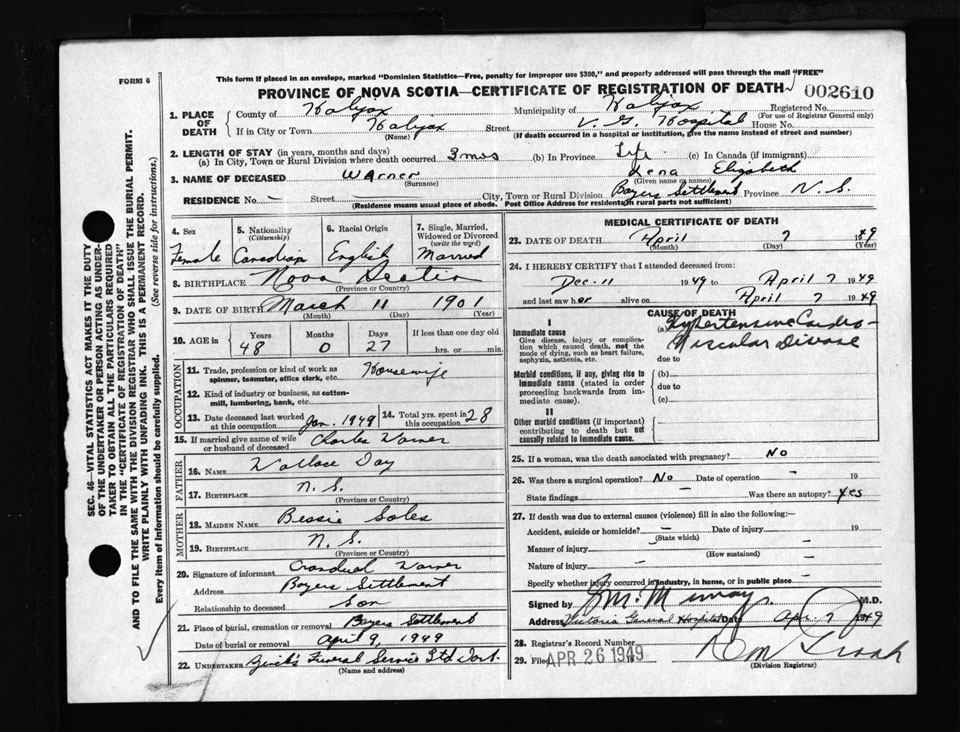 FORM 6
This form if placed in an envelope, marked "Dominion Statistics—Free, penalty for improper use $300," and properly addressed will pass through the mail "FREE"
PROVINCE OF NOVA SCOTIA—CERTIFICATE OF REGISTRATION OF DEATH 002610
1. PLACE OF DEATH County of Halifax Municipality of Halifax Registered No.
(For use of Registrar General only)
If in City or Town Halifax Street V. G. Hospital House No.
(Name) (If death occurred in a hospital or institution, give the name instead of street and number)
2. LENGTH OF STAY (in years, months and days)
(a) In City, Town or Rural Division where death occurred 3 mos (b) In Province Life (c) In Canada (if immigrant)
3. NAME OF DECEASED Warner Lena Elizabeth
(Surname) (Given name or names)
RESIDENCE No. — Street City, Town or Rural Division Boyers Settlement Province N. S.
(Residence means usual place of abode. Post Office Address for residents in rural parts not sufficient)
4. Sex 5. Nationality (Citizenship) 6. Racial Origin 7. Single, Married, Widowed or Divorced (write the word)
Female Canadian English Married
8. BIRTHPLACE Nova Scotia
(Province or Country)
9. DATE OF BIRTH March 11 1901
(Month) (Day) (Year)
10. AGE in Years Months Days If less than one day old
48 0 27 hrs. or min.
OCCUPATION
11. Trade, profession or kind of work as spinner, teamster, office clerk, etc. Housewife
12. Kind of industry or business, as cotton-mill, lumbering, bank, etc.
13. Date deceased last worked at this occupation Jan. 1949 14. Total yrs. spent in this occupation 28
15. If married give name of wife or husband of deceased Charles Warner
FATHER
16. NAME Wallace Day
17. BIRTHPLACE N. S.
(Province or Country)
MOTHER
18. MAIDEN NAME Bessie Soles
19. BIRTHPLACE N. S.
(Province or Country)
20. Signature of informant Warner
Address Boyers Settlement
Relationship to deceased Son
21. Place of burial, cremation or removal Boyers Settlement
Date of burial or removal April 9, 1949
22. UNDERTAKER Funeral Service Ltd
(Name and address)
MEDICAL CERTIFICATE OF DEATH
23. DATE OF DEATH April 7 1949
(Month) (Day) (Year)
24. I HEREBY CERTIFY that I attended deceased from:
Dec. 11 1949 to April 7 1949
and last saw her alive on April 7 1949
CAUSE OF DEATH
I
Immediate cause (a) Hypertensive Cardio-
Give disease, injury or complication which caused death, not the mode of dying, such as heart failure, asphyxia, asthenia, etc. Vascular Disease
due to
Morbid conditions, if any, giving rise to immediate cause (stated in order proceeding backwards from immediate cause). (b)
due to
(c)
II
Other morbid conditions (if important) contributing to death but not causally related to immediate cause.
25. If a woman, was the death associated with pregnancy? No
26. Was there a surgical operation? No Date of operation — 19
State findings — Was there an autopsy? Yes
27. If death was due to external causes (violence) fill in also the following:—
Accident, suicide or homicide? — Date of injury — 19
(State which)
Manner of injury —
(How sustained)
Nature of injury —
Specify whether injury occurred in industry, in home, or in public place —
Signed by Murray M.D.
Address Victoria General Hospital Date Apr. 7 1949
28. Registrar's Record Number
29. Filed APR 26 1949
(Division Registrar)
SEC. 46—VITAL STATISTICS ACT MAKES IT THE DUTY
OF THE UNDERTAKER OR PERSON ACTING AS UNDER-
TAKER TO OBTAIN ALL THE PARTICULARS REQUIRED
IN THE "CERTIFICATE OF REGISTRATION OF DEATH"
AND TO FILE THE SAME WITH THE DIVISION REGISTRAR WHO SHALL ISSUE THE BURIAL PERMIT.
WRITE PLAINLY WITH UNFADING INK. THIS IS A PERMANENT RECORD.
Every item of information should be carefully supplied. (See reverse side for instructions.)